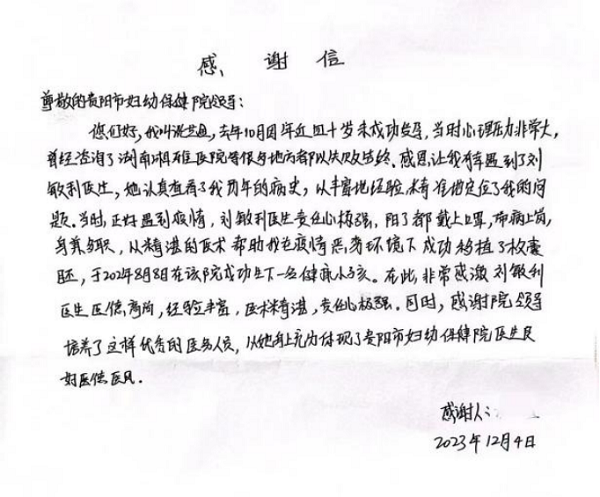 感谢信
尊敬的贵阳市妇幼保健院领导:
您们好,我叫,去年10月因年近四十岁未成功怀孕,当时心理压力非常大,
曾经咨询了湖南湘雅医院等很多地方都以失败告终。感恩让我有幸遇到了刘
敏利医生,她认真查看了我历年的病史,以丰富地经验,精准地定位了我的问
题。当时,正好遇到疫情,刘敏利医生责任心极强,阳了都戴上口罩,带病上岗,
身兼多职,从精湛的医术帮助我在疫情恶劣环境下成功移植了一枚囊
胚,于2023年8月8日在该院成功生下一名健康小孩。在此,非常感激刘敏利
医生医德高尚,经验丰富,医术精湛,责任心极强。同时,感谢院领导
培养了这样优秀的医务人员,从她身上充分体现了贵阳市妇幼保健院医生良
好医德医风。
感谢人:
2023年12月4日